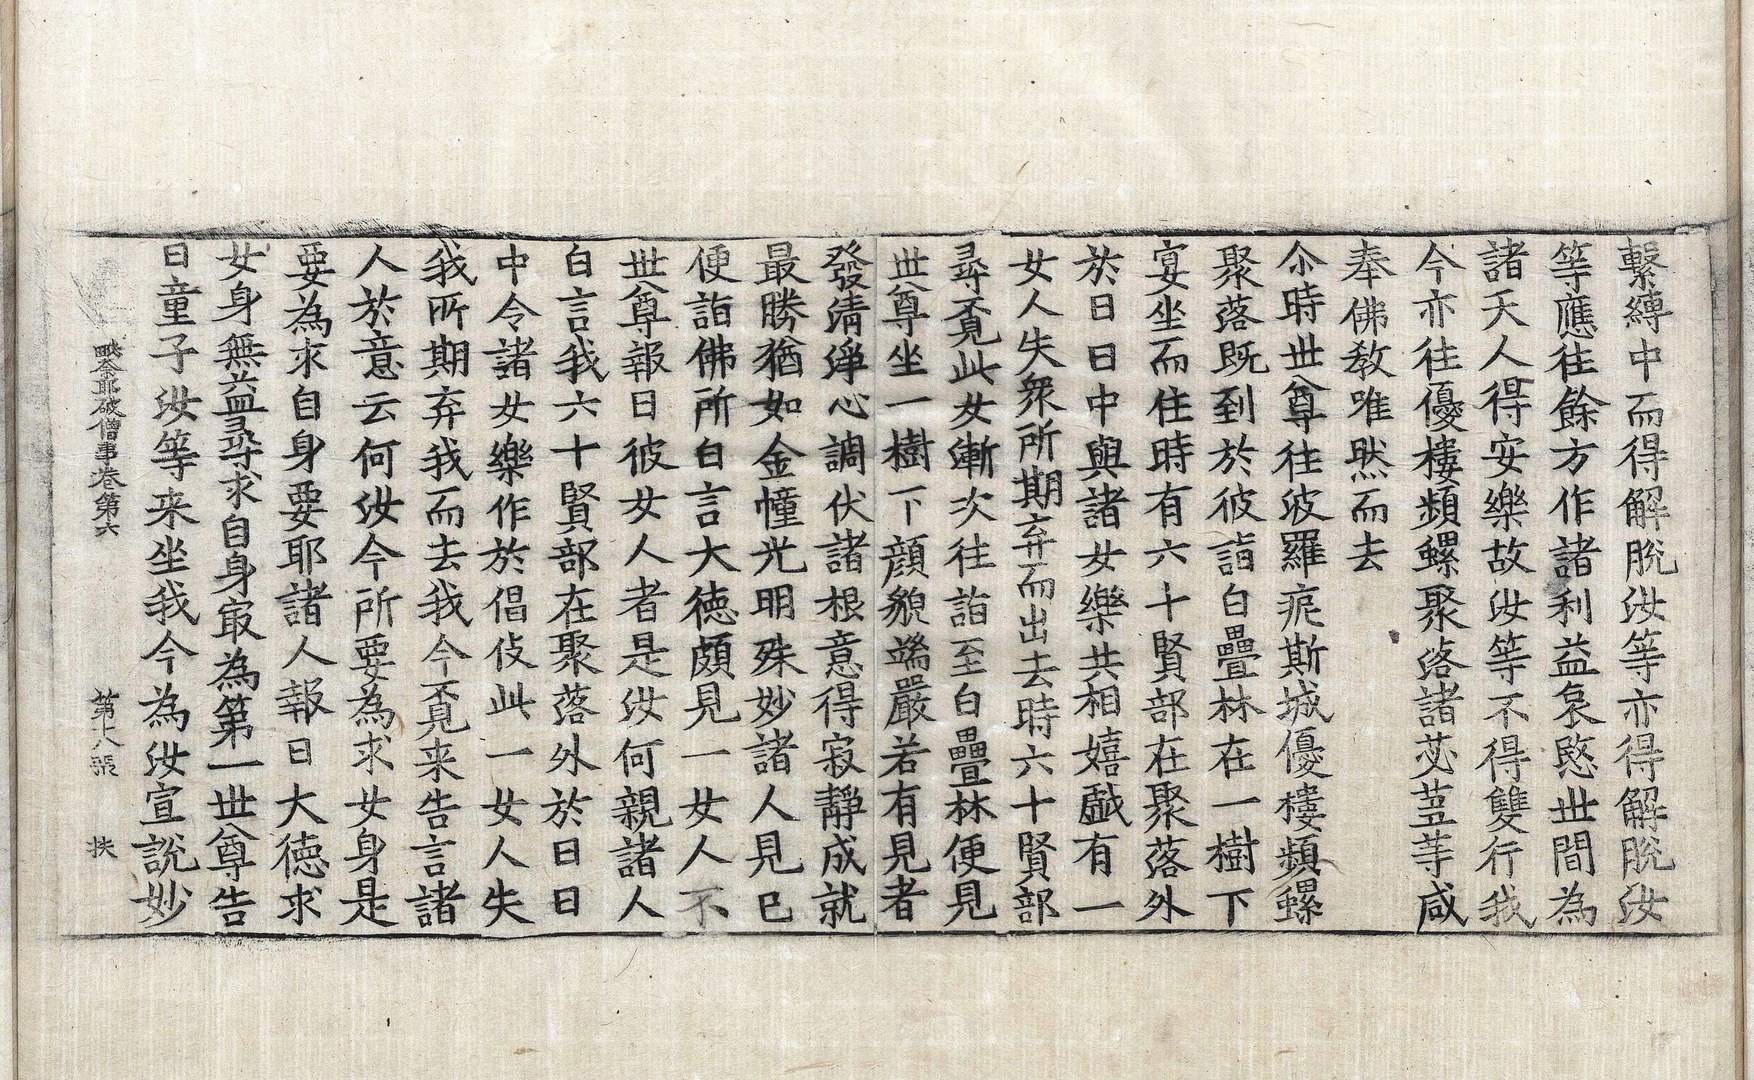 繫縛中而得解脫汝等亦得解脫汝
等應往餘方作諸利益哀愍世間為
諸天人得安樂故汝等不得雙行我
今亦往優樓頻螺聚落諸苾芻等咸
奉佛教唯然而去
尒時世尊往波羅疪斯城優樓頻螺
聚落既到於彼詣白疊林在一樹下
宴坐而住時有六十賢部在聚落外
於日日中與諸女樂共相嬉戲有一
女人失衆所期弃而出去時六十賢部
尋覔此女漸次往詣至白疊林便見
世尊坐一樹下顔貌端嚴若有見者
發清淨心調伏諸根意得寂靜成就
最勝猶如金幢光明殊妙諸人見已
便詣佛所白言大德頗見一女人不
世尊報曰彼女人者是汝何親諸人
白言我六十賢部在聚落外於日日
中令諸女樂作於倡伎此一女人失
我所期弃我而去我今覔来告言諸
人於意云何汝今所要為求女身是
要為求自身要耶諸人報曰大德求
女身無益尋求自身㝡為第一世尊告
曰童子汝等来坐我今為汝宣說妙
毗奈耶破僧事卷第六 第十八張 扶